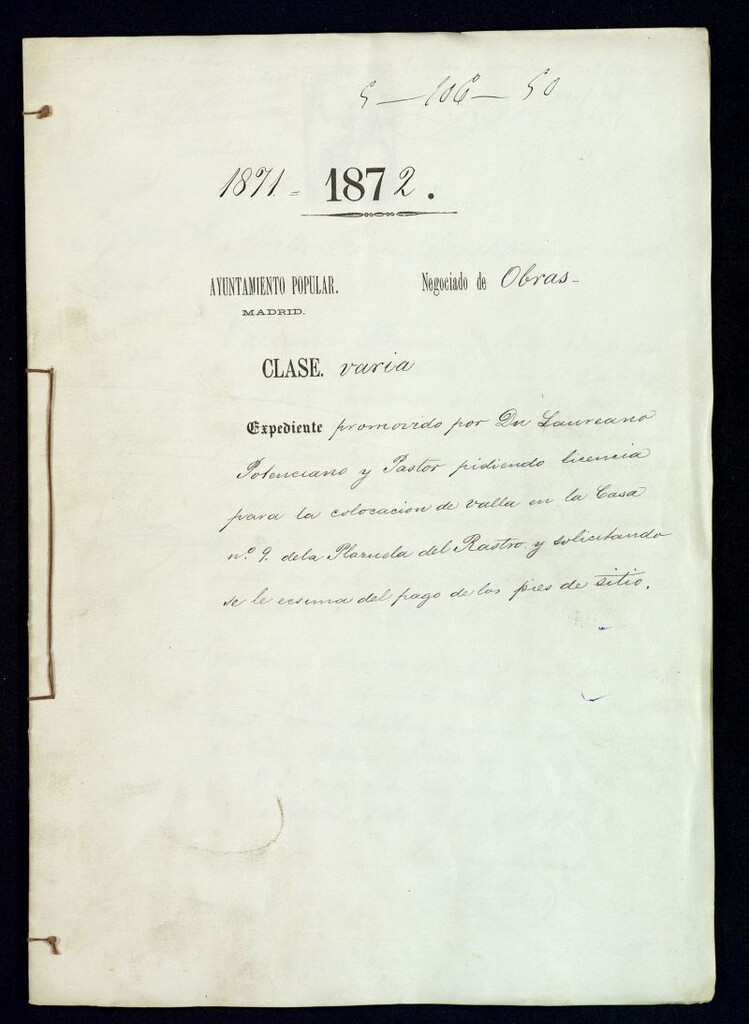 5 — 106 — 50
1871 = 1872.
AYUNTAMIENTO POPULAR. Negociado de Obras-
MADRID.
CLASE. varia
Expediente promovido por Dn Laureano
Potenciano y Pastor pidiendo licencia
para la colocacion de valla en la Casa
nº 9. dela Plazuela del Rastro. y solicitando
se le ecsima del pago de los pies de sitio.